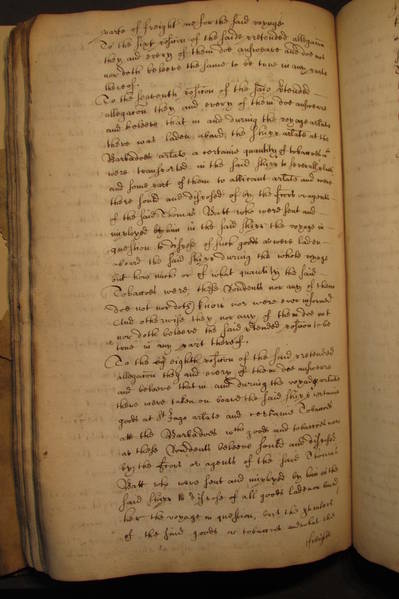 parte of freight me for the said voyage
To the sixt posicon of the said pretended allegacon
they and every of them doe answeare and doe not
nor doth beleeve the same to be true in any parte
thereof.
To the seaventh posicon of the said pretended
allegacon they and every of them doe answere
and beleeve that in and during the voyage arlate
there was laden aboard the shipp arlate at the
Barbadoes arlate a certaine quantity of tobaccoes
were transported in the said shipp to severall places
and some part of them to allicant arlate and were
there sould and disposed of by the factors or agents
of the said Thomas Batt who were sent and
imployed by him in the said shipp the voyage in
question to dispose of such goods as were laden
aboard the said shipp during the whole voyage
but how much or of what quantity the said
Tobaccoes were these Rondents nor any of them
doe not nor doth know nor were ever informed
And otherwise they nor any of them doe not
nor doth beleeve the said pretended posicon to be
true in any part thereof.
To the eighth posicon of the said pretended
allegacon they and every of them doe answere
and beleeve that in and during the voyage arlate
there were taken on board the said shipp certaine
goods at St Iago arlate and certaine Tobaccoes
att the Barbadoes which goods and tobaccoes were
as these Rondents beleeve sould and disposed
by the factors or agents of the said Thomas
Batt who were sent and imployed by him in the
said shipp to dispose of all goods laden on board
her the voyage in question, but the
of the said goods or tobaccoes and what the
freight